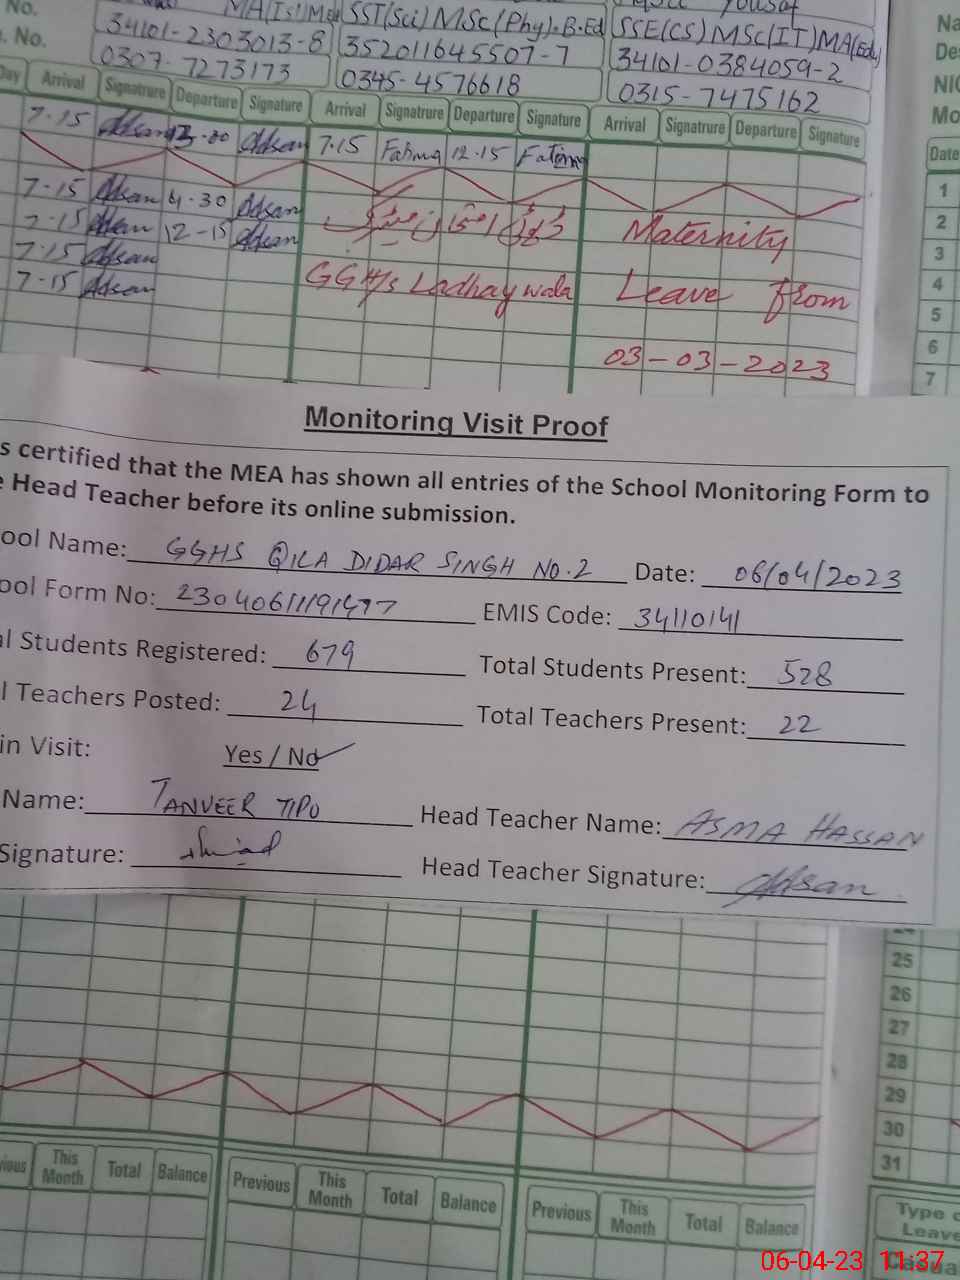 No.
MA(Isl)MEd SST(Sci) MSc(Phy).B.Ed SSE(CS) MSc(IT)MA(Edu)
No. 34101-2303013-8 352011645507-7 34101-0384059-2
0307-7273173 0345-4576618 0315-7475162
Day Arrival Signatrure Departure Signature Arrival Signatrure Departure Signature Arrival Signatrure Departure Signature
7-15 7.15 Fatima 12.15 Fatima
7-15 4-30
7-15 12-15
7-15
7-15
Maternity
GGHS Ladhaywala Leave from
03-03-2023
Na
De
NI
Mo
Date
1
2
3
4
5
6
7
Monitoring Visit Proof
s certified that the MEA has shown all entries of the School Monitoring Form to
e Head Teacher before its online submission.
ool Name: GGHS QILA DIDAR SINGH NO.2 Date: 06/04/2023
ool Form No: EMIS Code: 34110141
al Students Registered: 679 Total Students Present: 528
l Teachers Posted: 24 Total Teachers Present: 22
in Visit: Yes / No
Name: TANVEER TIPO Head Teacher Name: ASMA HASSAN
Signature: Head Teacher Signature:
25
26
27
28
29
30
31
vious This Month Total Balance Previous This Month Total Balance Previous This Month Total Balance
Type o
Leave
06-04-23 11:37